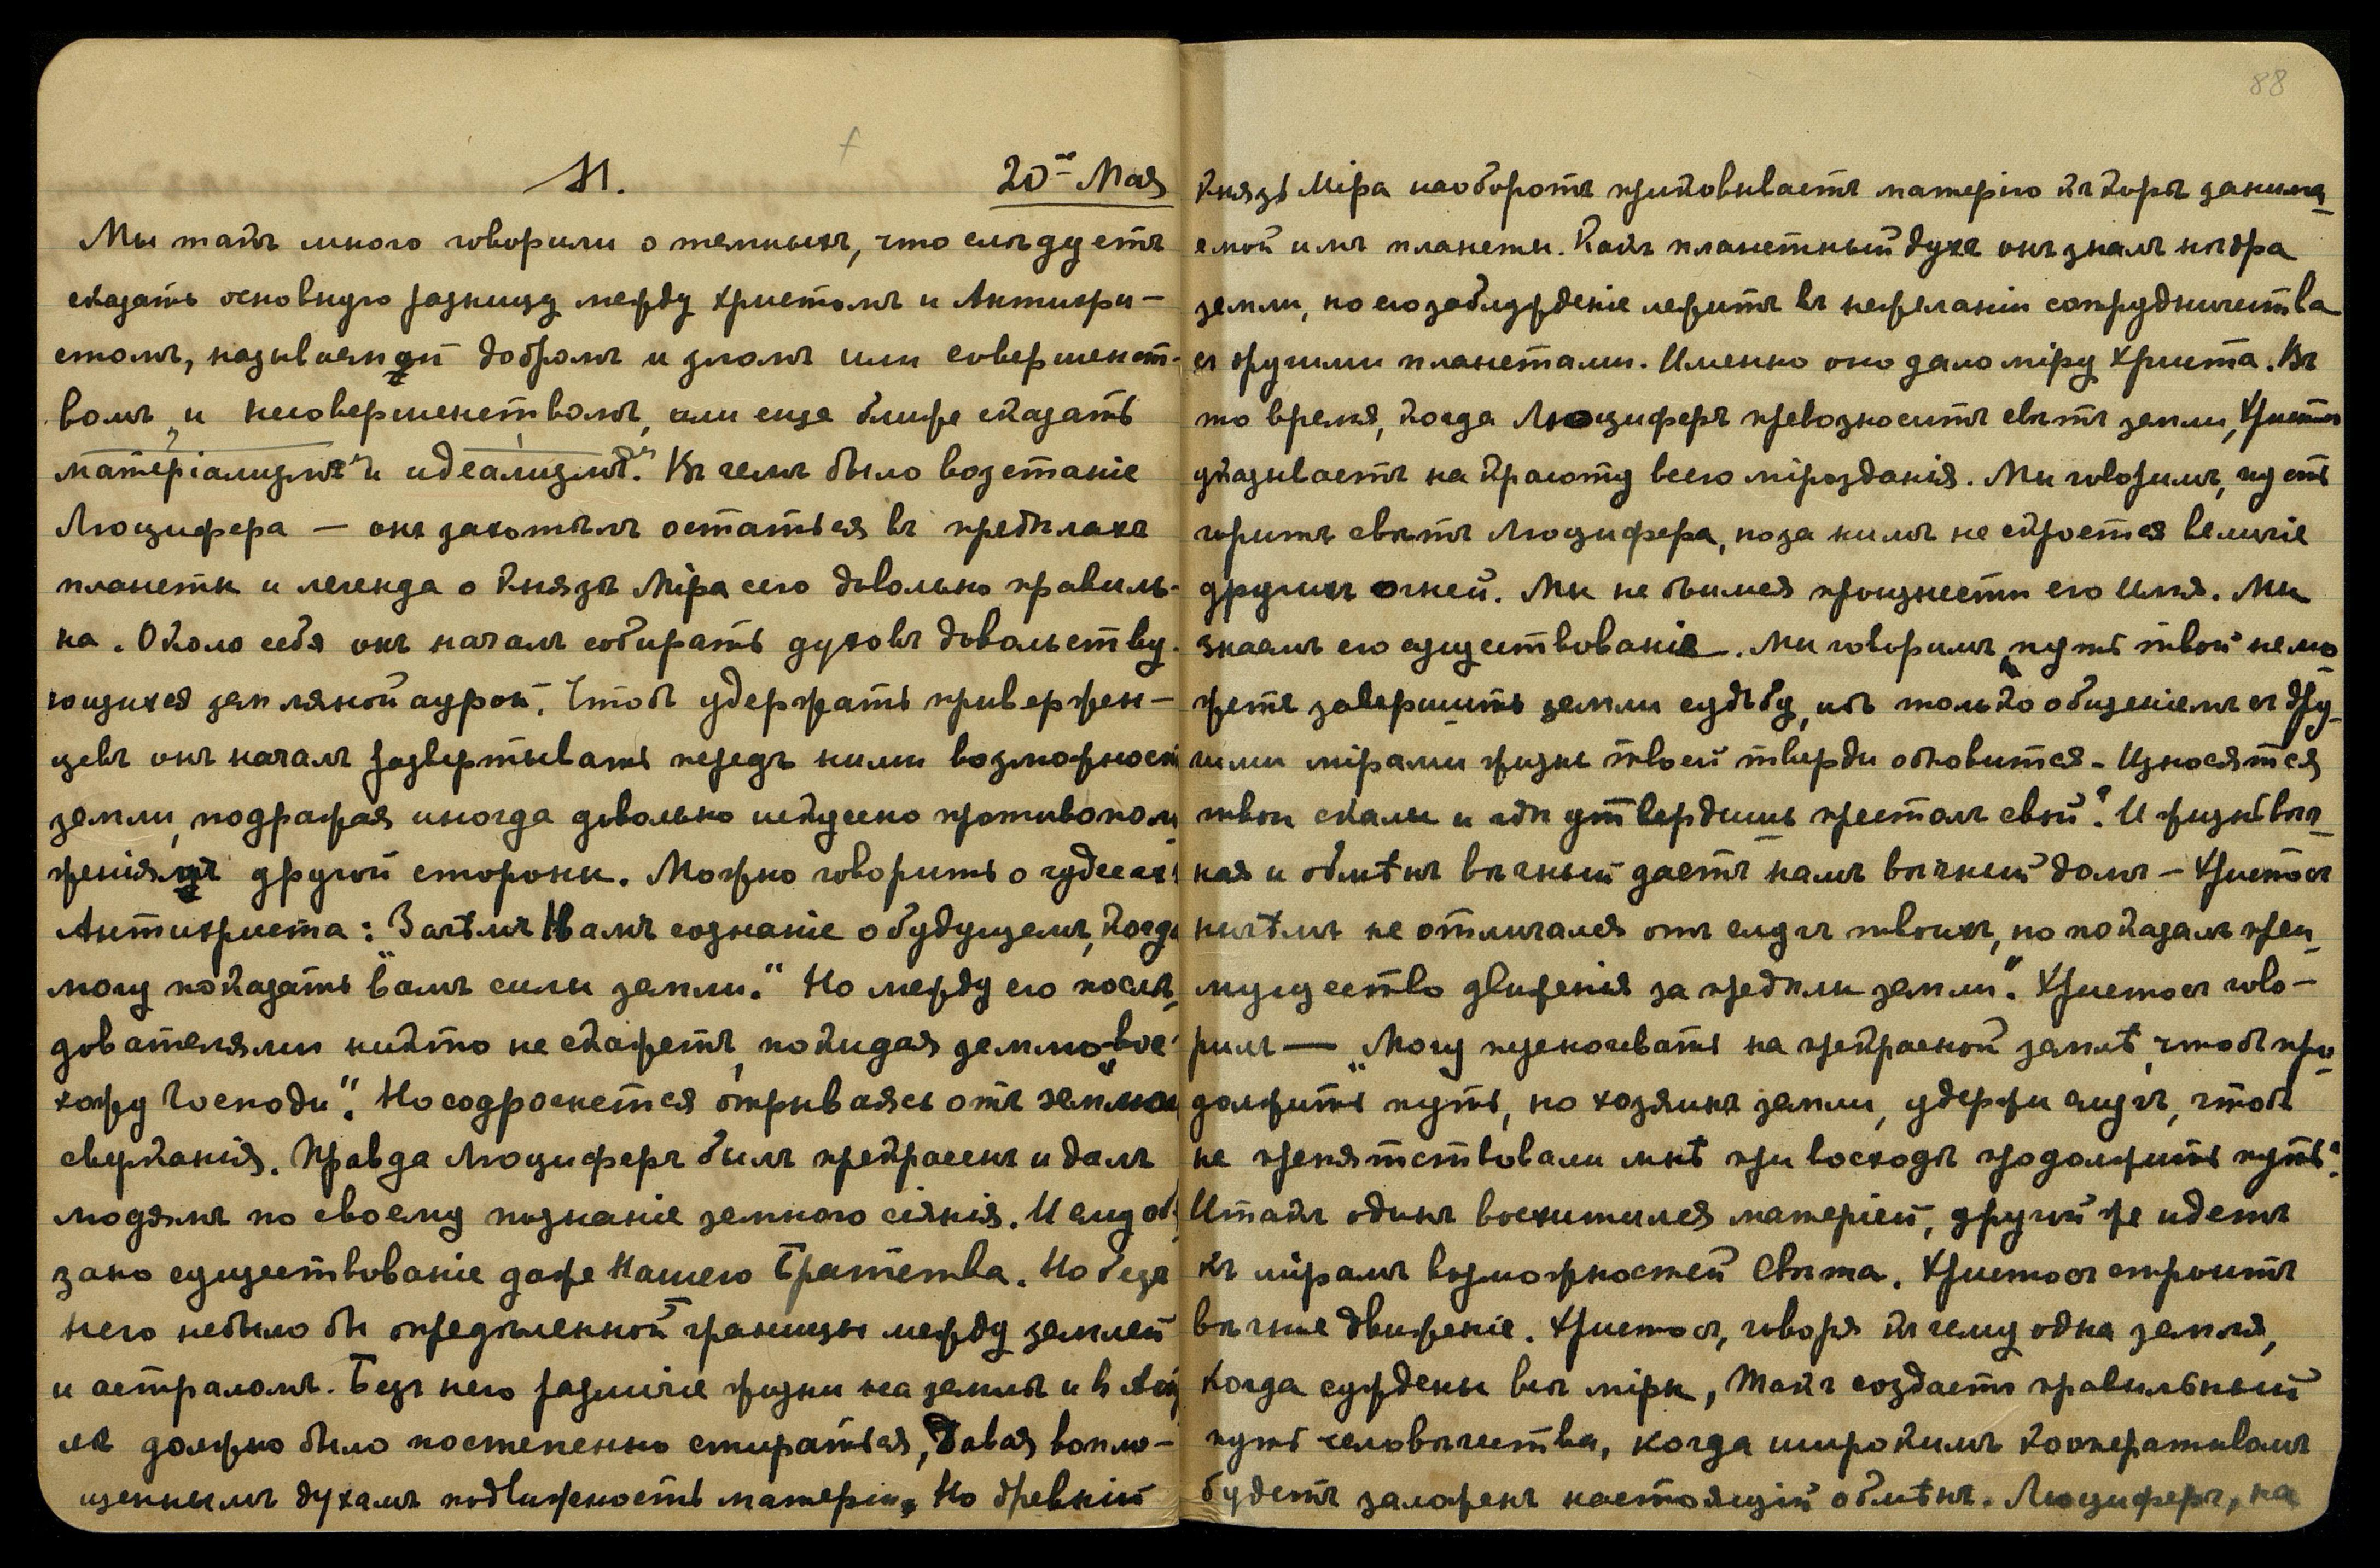 М. 20ое Мая
Мы такъ много говорили о темныхъ, что слѣдуетъ
сказать основную разницу между Христомъ и Антихри-
стомъ, называемой добромъ и зломъ или совершенст-
вомъ и несовершенствомъ, или еще ближе сказать
„матеріализмъ“ и „идеализмъ“. Въ чемъ было возстаніе
Люцифера — онъ захотѣлъ остаться въ предѣлахъ
планеты и легенда о Князѣ Міра сего довольно правиль-
на. Около себя онъ началъ собирать духовъ довольству-
ющихся земляной аурой. Чтобъ удержать привержен-
цевъ онъ началъ развертывать передъ ними возможности
земли, подражая иногда довольно искусно противополо
женіямъ другой стороны. Можно говорить о чудесахъ
Антихриста: Зачѣмъ Вамъ сознаніе о будущемъ, когда
могу показать „вамъ силы земли.“ Но между его послѣ-
дователями никто не скажетъ, покидая землю „вос-
хожу Господи“. Но содрогнется отрываясь отъ земного
сверканія. Правда Люциферъ былъ прекрасенъ и далъ
людямъ по своему познаніе земного сіянія. И ему обя
зано существованіе даже Нашего Братства. Но безъ
него небыло бы опредѣленной границы между землей
и астраломъ. Безъ него различіе жизни на землѣ и в Астра
лѣ должно было постепенно стираться, Давая вопло-
щеннымъ духамъ подвижность матеріи. Но древній
88
Князь Міра наоборотъ приковываетъ матерію къ корѣ занима-
емой имъ планеты. Какъ планетный духъ онъ зналъ нѣдра
земли, но его заблужденіе лежитъ въ нежеланіи сотрудничества
съ другими планетами. Именно оно дало міру Христа. Въ
то время, когда Люциферъ превозноситъ свѣтъ земли, Христосъ
указываетъ на красоту всего мірозданія. Мы говоримъ, пусть
горитъ свѣтъ Люцифера, но за нимъ не скроется величіе
другихъ огней. Мы не боимся произнести его Имя. Мы
знаемъ его существованіе. Мы говоримъ „путь твой не мо-
жетъ завершить земли судьбу, ибъ только общеніемъ съ дру-
гими мірами жизнь твоей тверди обновится. Износятся
твои скалы и гдѣ утвердишь престолъ свой? И жизнь вѣч-
ная и обмѣнъ вѣчный даетъ намъ вѣчный домъ — Христосъ
ничѣмъ не отличался отъ слугъ твоихъ, но показалъ преи-
мущество движенія за предѣлы земли“. Христосъ гово-
рилъ — „Могу переночевать на прекрасной землѣ, чтобъ про-
должить путь, но хозяинъ земли, удержи слугъ, чтобъ
не препятствовали мнѣ при восходѣ продолжить путь“.
Итакъ одинъ восхитился матеріей, другой же идетъ
къ мірамъ возможностей Свѣта. Христосъ строитъ
вѣчное движеніе. Христосъ, говоря къ чему одна земля,
когда суждены всѣ міры, Такъ создастъ правильный
путь человѣчества, когда широкимъ кооперативомъ
будетъ заложенъ настоящій обмѣнъ. Люциферъ, на